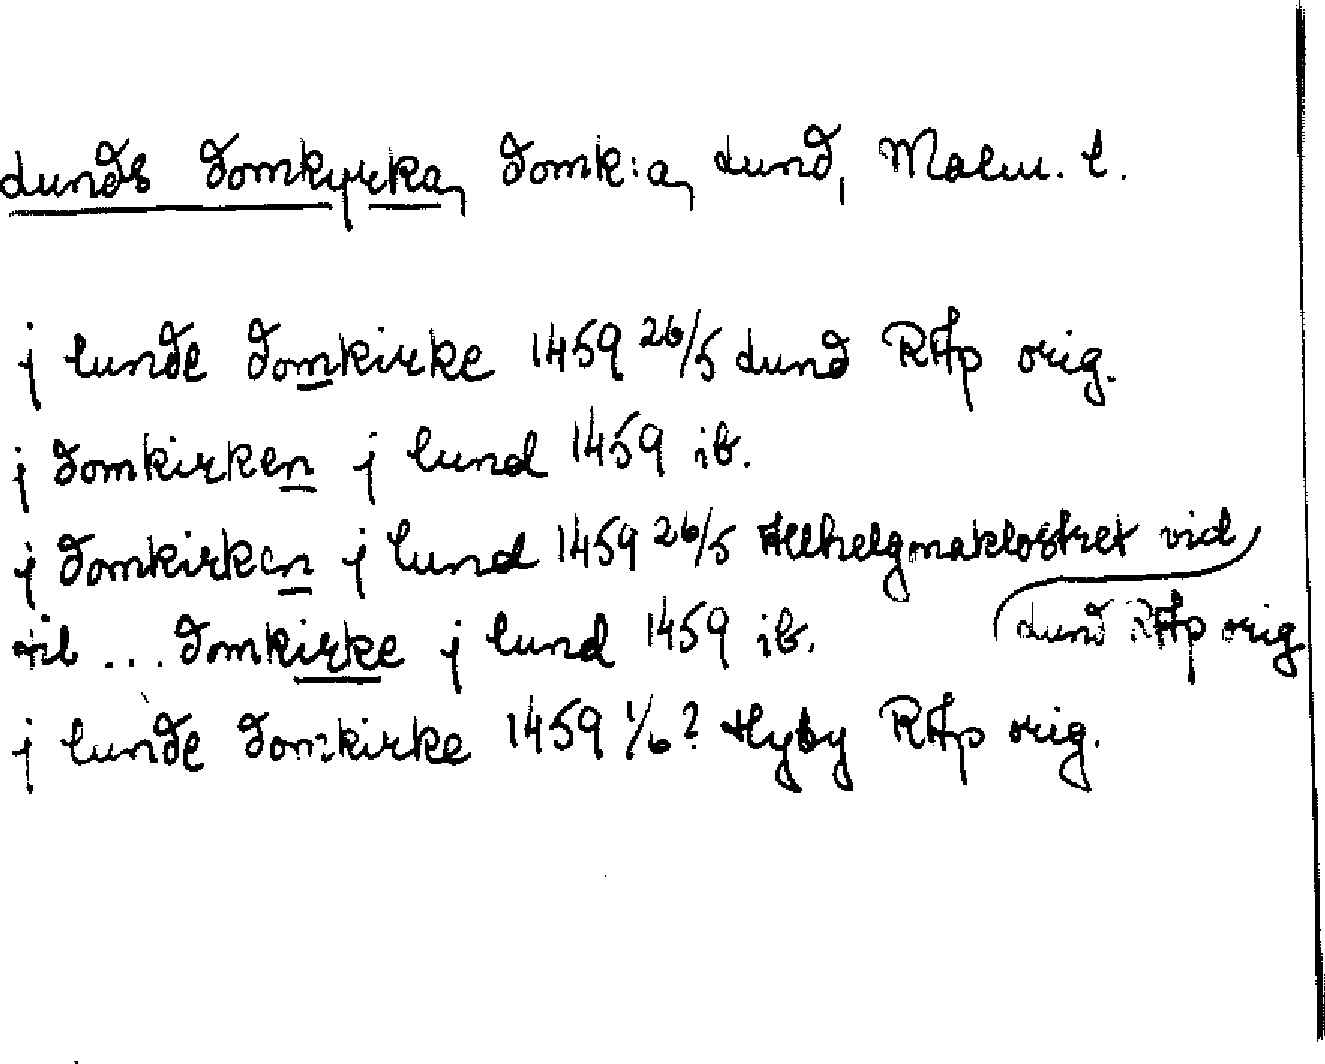 Lunds domkyrka, domk:a, Lund, Malm. l.
j lunde domkirke 1459 26/5 Lund RAp orig.
j domkirken j lund 1459 ib.
j domkirken j lund 1459 26/5 Allhelgonaklostret vid
Lund RAp orig
til ... domkirke j lund 1459 ib.
j lunde domkirke 1459 1/6? Hyby RAp orig.